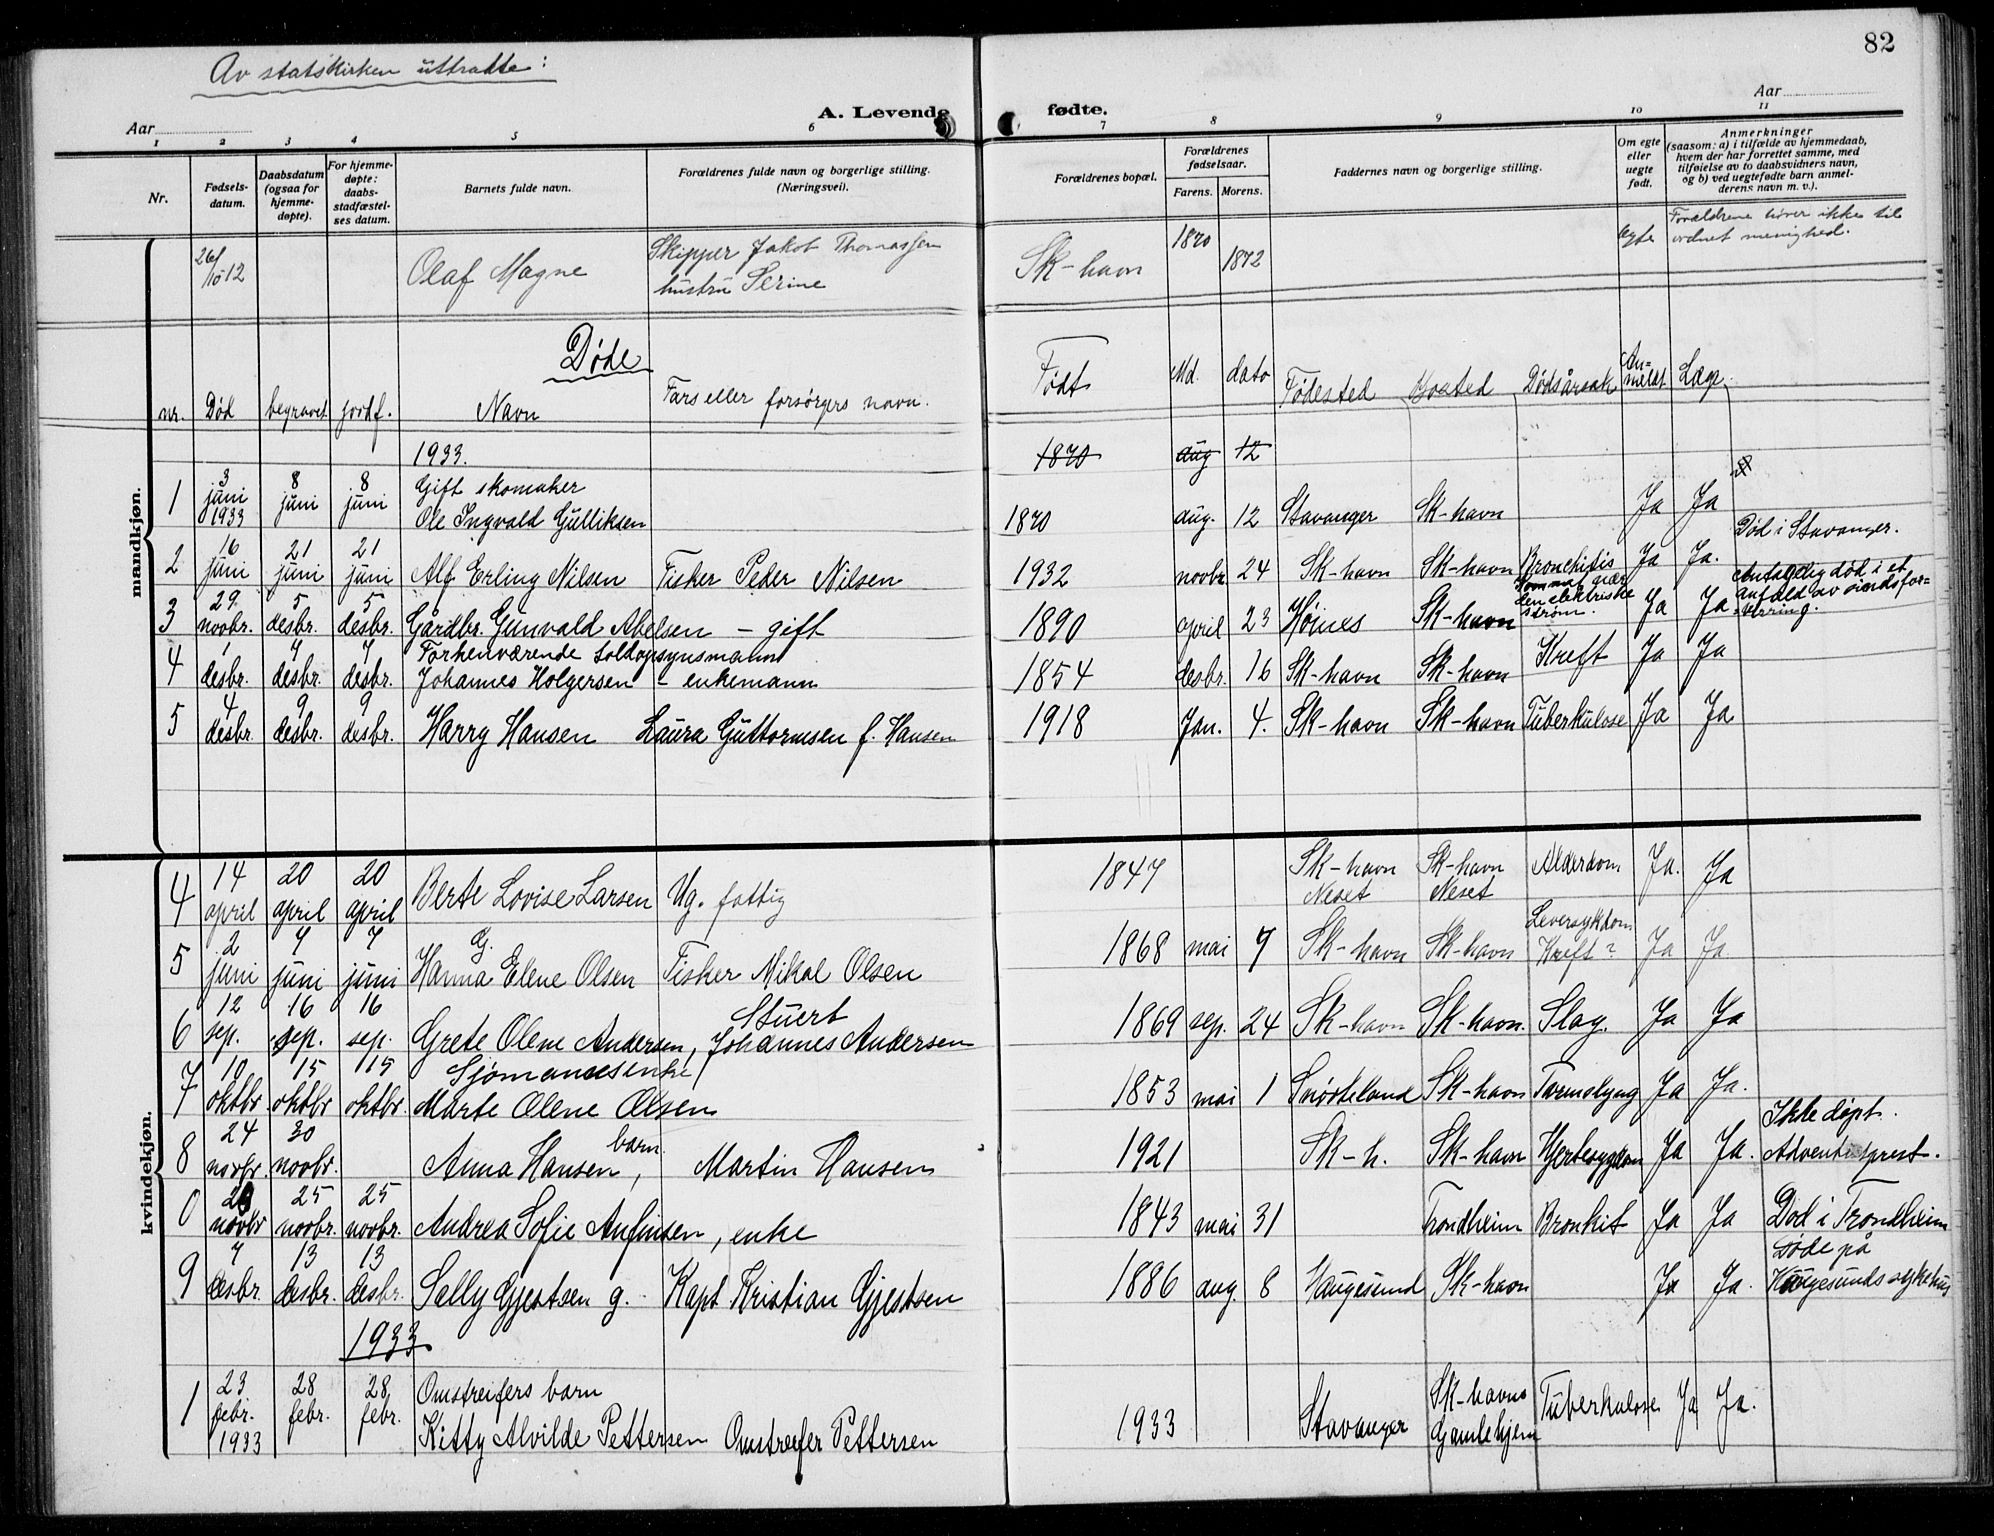 82
Av statskirken uttradte:
Aar
A. Levende fødte.
Aar
1 2 3 4 5 6 7 8 9 10 11
Nr.
Fødsels-
datum.
Daabsdatum
(ogsaa for
hjemme-
døpte).
For hjemme-
døpte:
daabs-
stadfæstel-
ses datum.
Barnets fulde navn.
Forældrenes fulde navn og borgerlige stilling.
(Næringsvei).
Forældrenes bopæl.
Forældrenes
fødselsaar.
Farens. Morens.
Faddernes navn og borgerlige stilling.
Om egte
eller
uegte
født.
Anmerkninger
(saasom: a) i tilfælde av hjemmedaab,
hvem der har forrettet samme, med
tilføielse av to daabsvidners navn,
og b) ved uegtefødte barn anmel-
derens navn m. v.).
mandkjøn.
26/10 12 Olaf Magne Skipper Jakob Thomassen
hustru Serine
Sk-havn 1870 1872 egte Forældrene hører ikke til
ordnet menighed.
Døde
nr. Død begravet jordf. Navn Fars eller forsørgers navn.
Født Md. dato Fødested Bosted Dødsårsak An-
meldt Læge
1933.
1870 aug 12
1 3 juni 1933 8 juni 8 juni Gift skomaker
Ole Ingvald Gulliksen
1870 aug. 12 Stavanger Sk-havn Ja Ja Død i Stavanger.
2 16 juni 21 juni 21 juni Alf Erling Nilsen Fisker Peder Nilsen 1932 novbr 24 Sk-havn Sk-havn Bronchitis Ja Ja.
3 29. novbr. 5 desbr. 5 desbr. Gårdbr. Gunvald Abelsen - gift 1890 april 23 Høines Sk-havn
den elektriske
strøm. Ja Ja Antagelig død i et
anfald av sindsfor-
virring.
4 1 desbr. 7 desbr. 7 desbr. Forhenværende toldopsynsmann
Johannes Holgersen - enkemann 1854 desbr. 16 Sk-havn Sk-havn Kreft Ja Ja
5 4 desbr. 9 desbr. 9 desbr. Harry Hansen Laura Guttormsen f. Hansen 1918 Jan. 4. Sk-havn Sk-havn Tuberkulose Ja Ja
kvindekjøn.
4 14 april 20 april 20 april Berte Lovise Larsen Ug. fattig 1847 Sk-havn
Neset Sk-havn
Neset Alderdom Ja. Ja
5 2 juni 7 juni 7 juni G.
Hanna Elene Olsen Fisker Mikal Olsen 1868 mai 7 Sk-havn Sk-havn Leversykdom
Kreft? Ja Ja
6 12 sep. 16 sep. 16 sep. Grete Olene Andersen, Stuert
Johannes Andersen 1869 sep. 24 Sk-havn Sk-havn. Slag. Ja Ja
7 10 oktbr 15 oktbr 15 oktbr. Sjømannsenke
Marte Olene Olsen 1853 mai 1 Snørteland Sk-havn Tarmslyng Ja Ja.
8 24 novbr. 30 novbr. Anna Hansen, barn Martin Hansen 1921 Sk-h. Sk-havn Hjertesygdom Ja Ja. Ikke døpt.
Adventistprest.
0 20 novbr 25 novbr. 25 novbr. Andrea Sofie Anfinsen, enke 1843 mai 31 Trondheim Bronkit Ja Ja Død i Trondheim
9 7 desbr. 13 desbr. 13 desbr. Selly Gjertsen g. Kapt Kristian Gjertsen 1886 aug. 8 Haugesund Sk-havn Ja Ja. Døde på
Haugesunds sykehus
1933
1 23 febr. 1933 28 febr. 28 febr. Omstreifers barn
Kitty Alvilde Pettersen Omstreifer Pettersen 1933 Stavanger Sk-havns
Gamlehjem Tuberkulose Ja Ja.